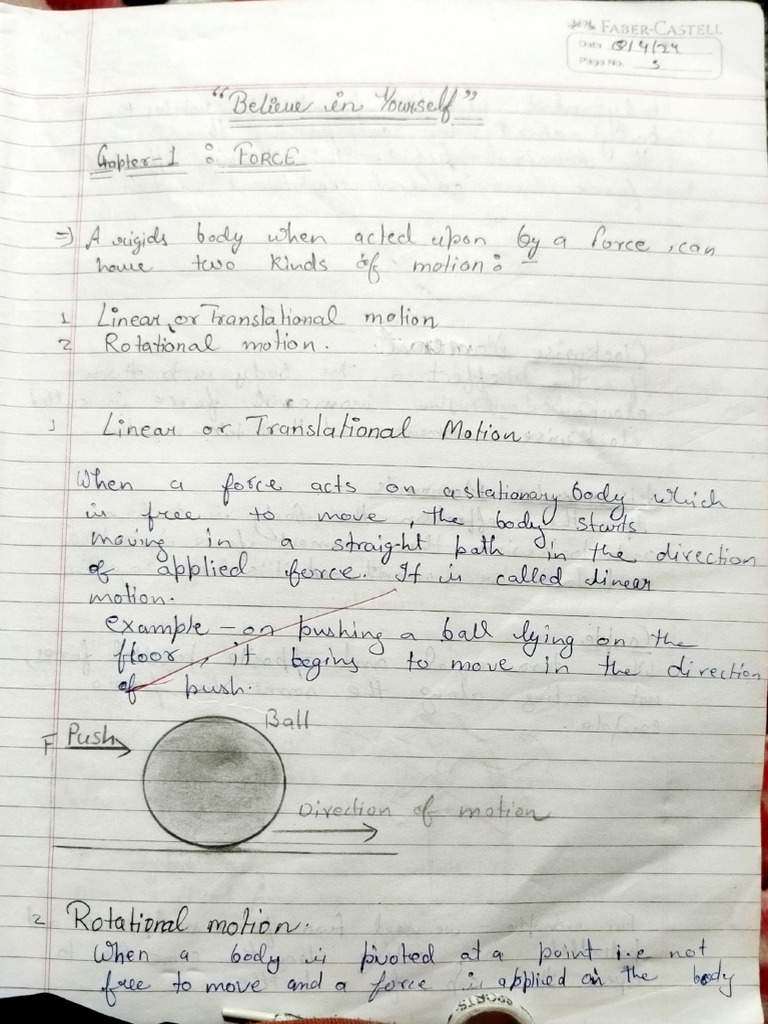 FABER-CASTELL
Date 8/4/24
Page No. 3
"Believe in Yourself"
Chapter-1 : FORCE
=> A rigids body when acted upon by a force, can
have two kinds of motion:-
1 Linear or Translational motion
2 Rotational motion.
Linear or Translational Motion
When a force acts on a stationary body which
is free to move, the body starts
moving in a straight path in the direction
of applied force. It is called linear
motion.
example - on pushing a ball lying on the
floor, it begins to move in the direction
of push.
Ball
F Push
Direction of motion
2 Rotational motion.
When a body is pivoted at a point i.e not
free to move and a force is applied on the body